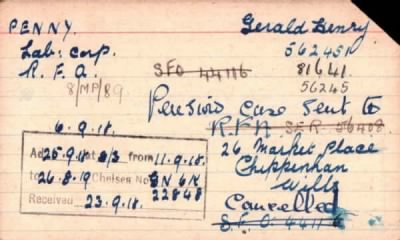 PENNY. Gerald Henry
Lab: Corp. 562451
R. F. A. SFO 44116 81641
8/MP/89 56245
Pensions case sent to
6.9.18. S.E.R. 56408
25.9.18 at 8/3 from 11.9.18. 26 Market Place
to 26.8.19 Chelsea No GN 6N Chippenham
22848 Wilts
Received 23.9.18. Cancelled
S.F.O. 44116